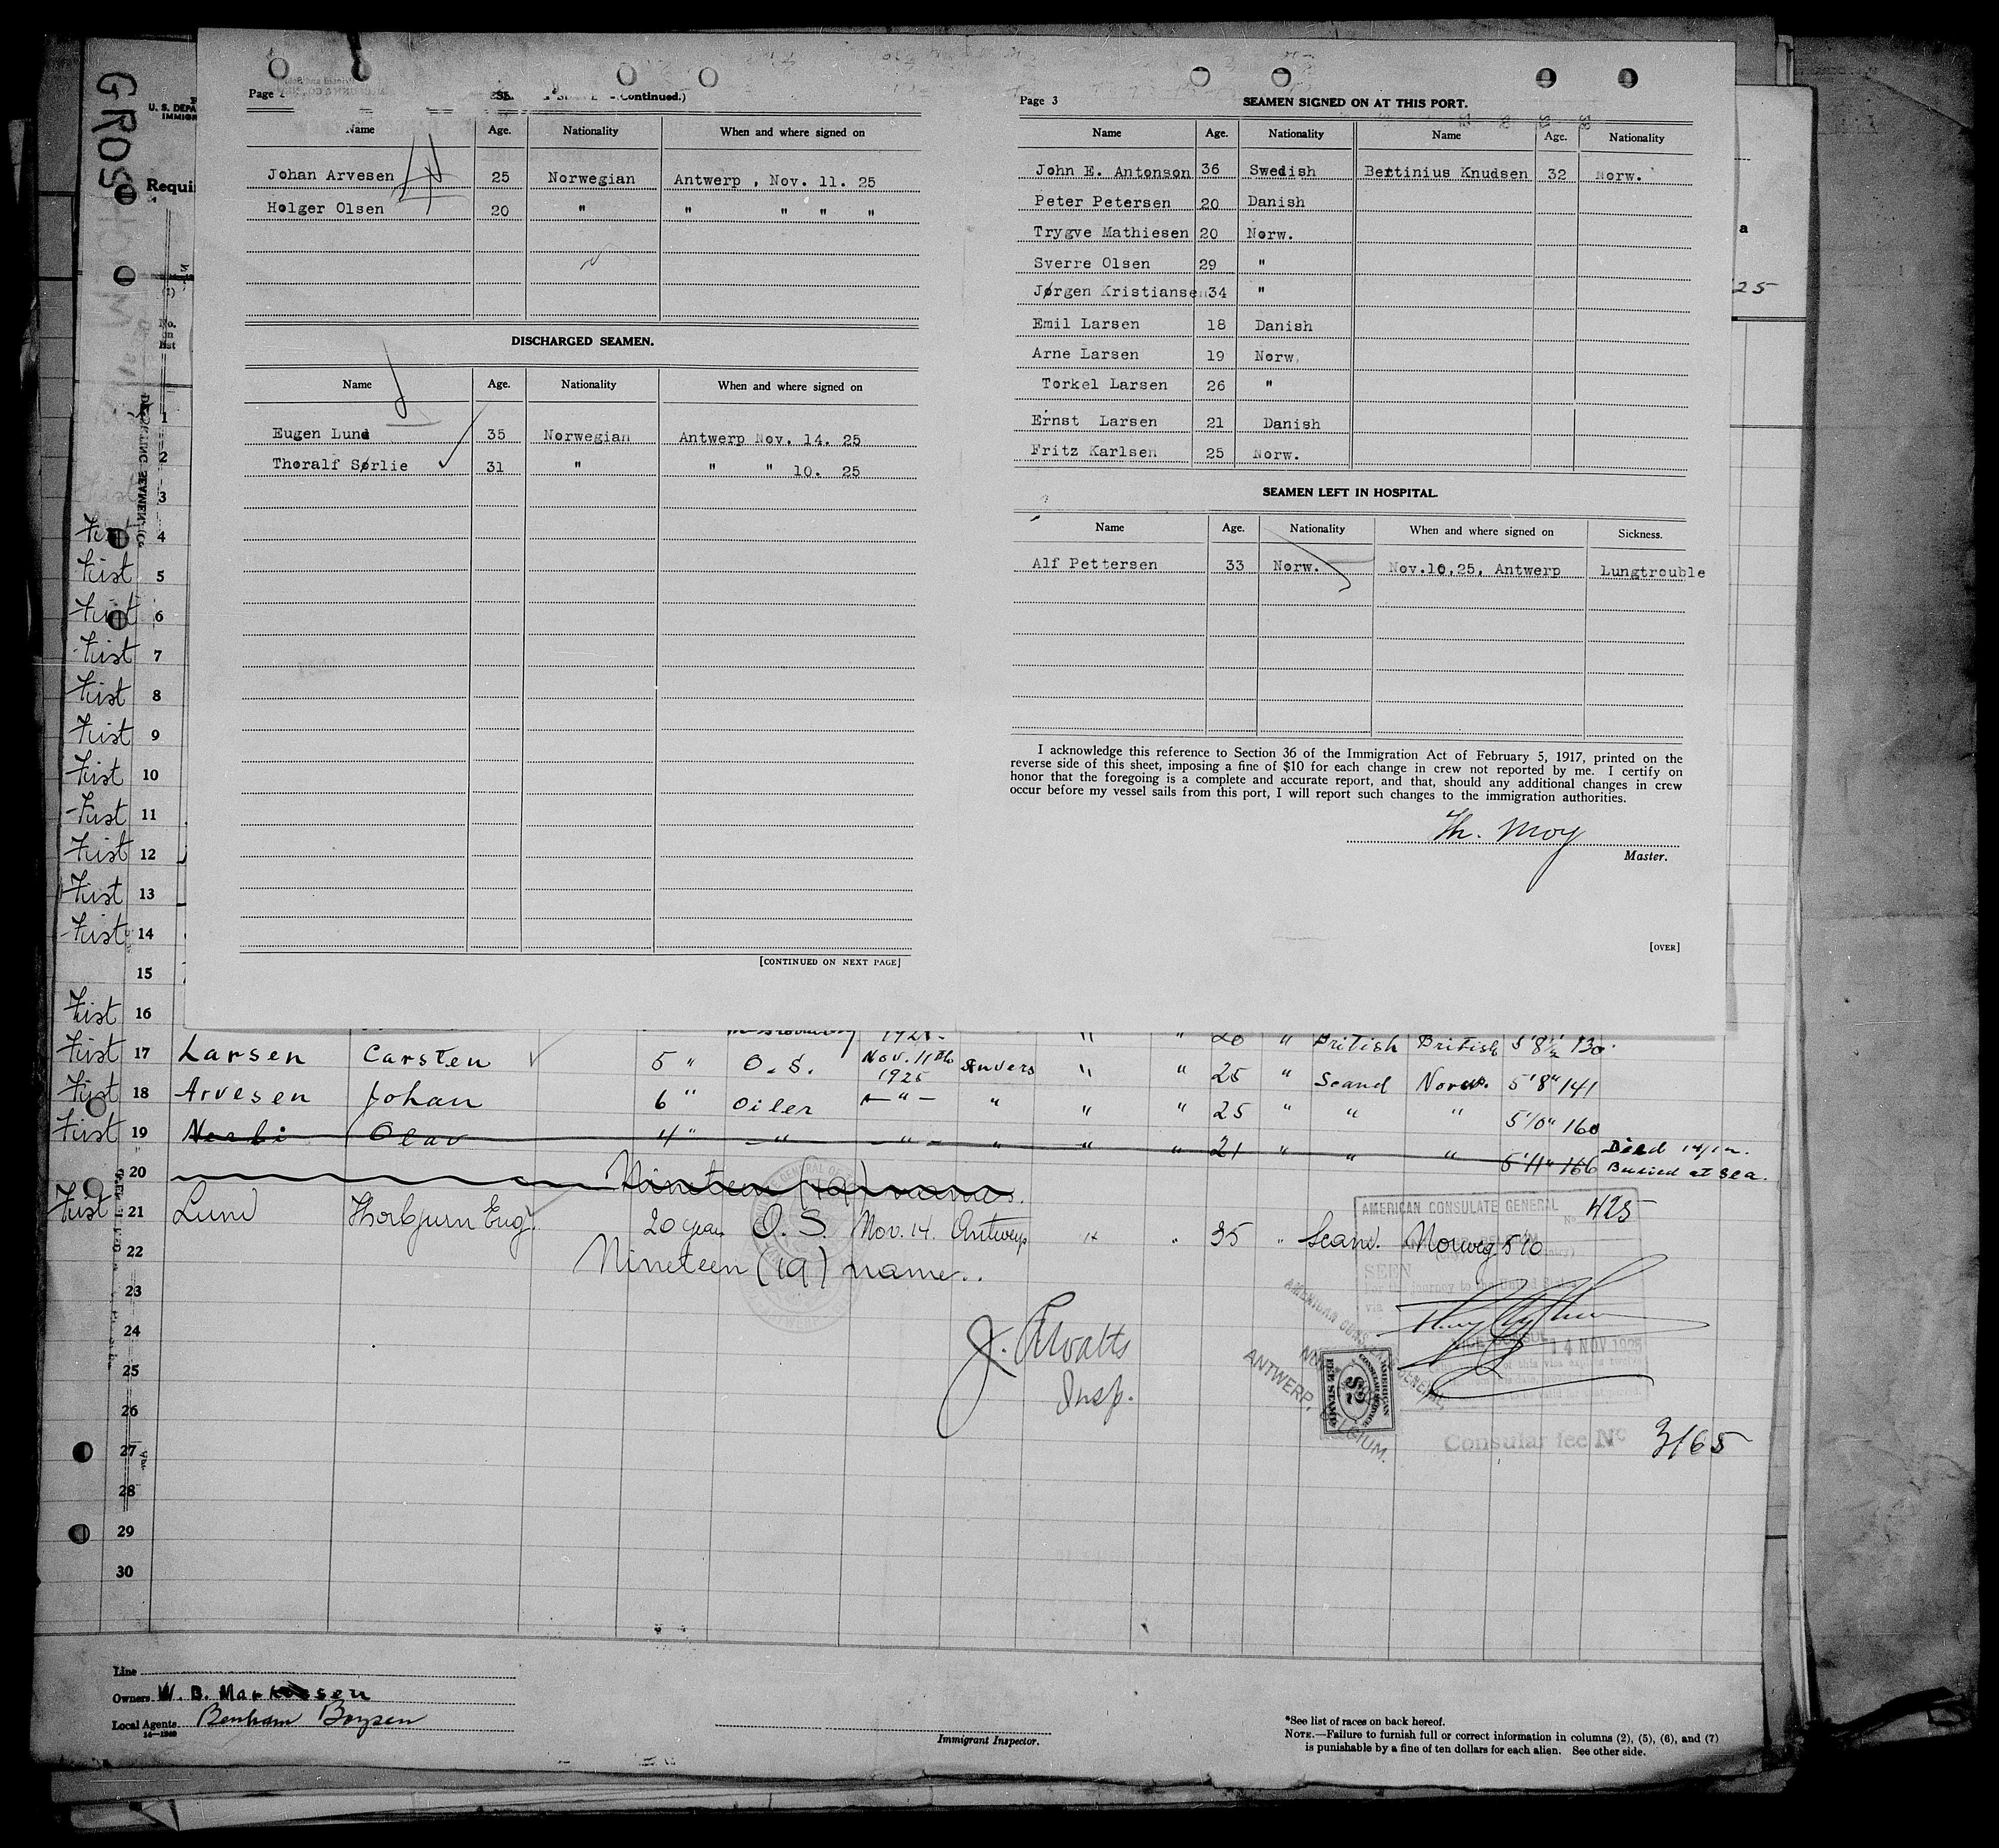 GROS
U. S. DEPA
IMMIG
Requi
Page
(Continued.)
Name Age. Nationality When and where signed on
Johan Arvesen 25 Norwegian Antwerp , Nov. 11. 25
Holger Olsen 20 " " " " "
DISCHARGED SEAMEN.
Name Age. Nationality When and where signed on
Eugen Lund 35 Norwegian Antwerp Nov. 14. 25
Thoralf Sørlie 31 " " " 10. 25
[CONTINUED ON NEXT PAGE]
Page 3 SEAMEN SIGNED ON AT THIS PORT.
Name Age. Nationality Name Age. Nationality
John E. Antonson 36 Swedish Bertinius Knudsen 32 Norw.
Peter Petersen 20 Danish
Trygve Mathiesen 20 Norw.
Sverre Olsen 29 "
Jørgen Kristiansen 34 "
Emil Larsen 18 Danish
Arne Larsen 19 Norw.
Torkel Larsen 26 "
Ernst Larsen 21 Danish
Fritz Karlsen 25 Norw.
SEAMEN LEFT IN HOSPITAL.
Name Age. Nationality When and where signed on Sickness.
Alf Pettersen 33 Norw. Nov.10.25, Antwerp Lungtrouble
I acknowledge this reference to Section 36 of the Immigration Act of February 5, 1917, printed on the
reverse side of this sheet, imposing a fine of $10 for each change in crew not reported by me. I certify on
honor that the foregoing is a complete and accurate report, and that, should any additional changes in crew
occur before my vessel sails from this port, I will report such changes to the immigration authorities.
Th. Moy
Master.
[OVER]
a
25
No.
on
list
1
2
3
First 4
First 5
First 6
First 7
First 8
First 9
First 10
First 11
First 12
First 13
First 14
15
First 16
1925 " " 20 " British British 5'8½ 130
First 17 Larsen Carsten 5 " O.S. Nov. 11th 1925 Anvers " " 25 " Scand Norw. 5'8" 141
First 18 Arvesen Johan 6 " Oiler - " - " " " 25 " " " 5'10" 160
First 19 Olav 4 " - " - - " - " " " 21 " " " 5'11" 166 Died 14/12. Buried at sea.
20 Nineteen (19) names.
First 21 Lund Thorbjurn Eug. 20 years O.S. Nov. 14. Antwerp " " 35 " Scand. Norweg 5'10
22 Nineteen (19) name..
23
24
25
26
27
28
29
30
AMERICAN CONSULATE GENERAL
No. 425
SEEN
For the journey to the United States
via
VICE CONSUL
14 NOV 1925
J. A. Watts
Insp.
AMERICAN CONSULATE GENERAL,
ANTWERP, BELGIUM.
AMERICAN
CONSULAR SERVICE
$2
FEE STAMP
Consular fee No 3165
Line
Owners W. B. Markussen
Local Agents Benham Boysen
14—1240
Immigrant Inspector.
*See list of races on back hereof.
NOTE.—Failure to furnish full or correct information in columns (2), (5), (6), and (7)
is punishable by a fine of ten dollars for each alien. See other side.